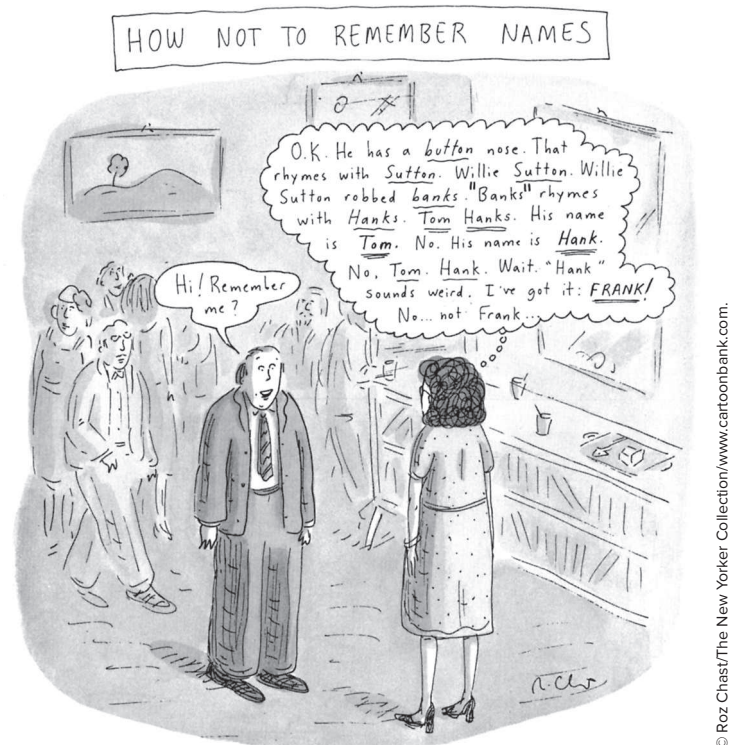 HOW NOT TO REMEMBER NAMES
O.K. He has a button nose. That
rhymes with Sutton. Willie Sutton. Willie
Sutton robbed banks. "Banks" rhymes
with Hanks. Tom Hanks. His name
is Tom. No. His name is Hank.
No, Tom. Hank. Wait. "Hank"
sounds weird. I've got it: FRANK!
No... not Frank...
Hi! Remember
me?
R. Chast
© Roz Chast/The New Yorker Collection/www.cartoonbank.com.